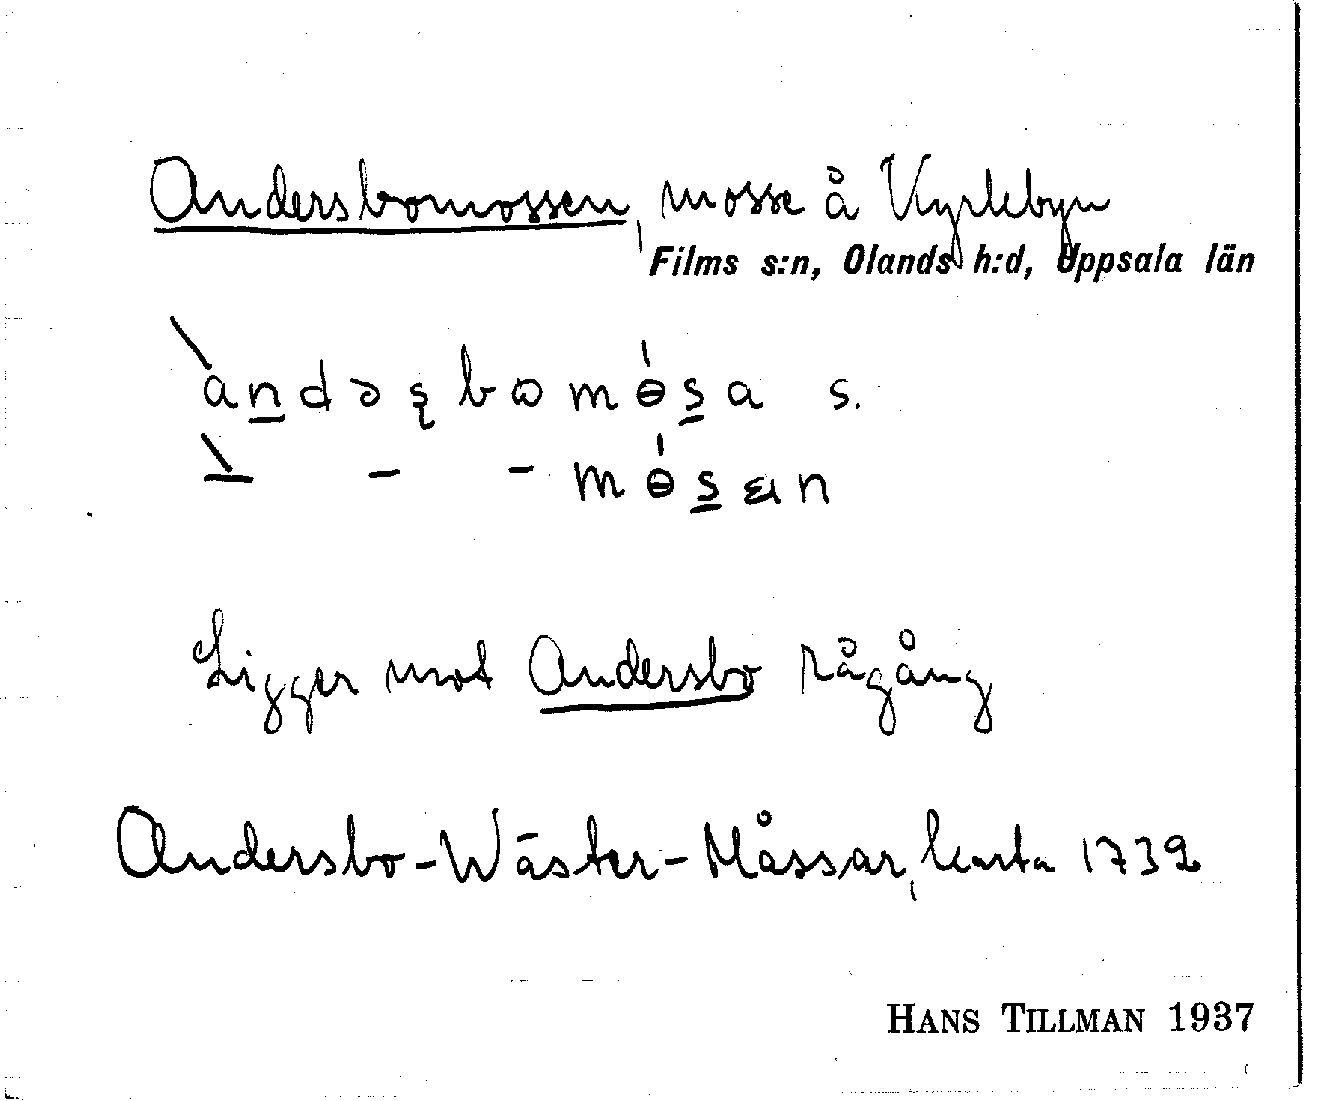 Andersbomossen, mosse å Vyrlebyn
Films s:n, Olands h:d, Uppsala län
andəʂbomɵ́sa s.
– – – mɵ́sɛn
Ligger mot Andersbo rågång
Andersbo-Wäster-Måssar, karta 1739
HANS TILLMAN 1937